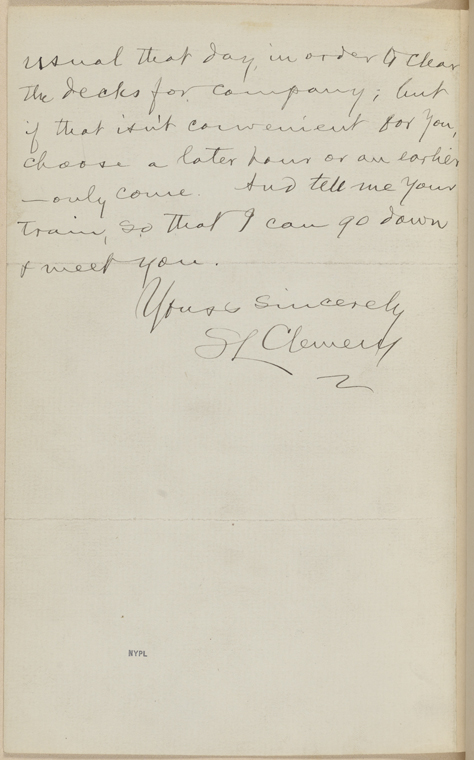 usual that day, in order to clear
the decks for company; but
if that isn't convenient for you,
choose a later hour or an earlier
—only come. And tell me your
train, so that I can go down
& meet you.
Yours sincerely
SL Clemens
NYPL